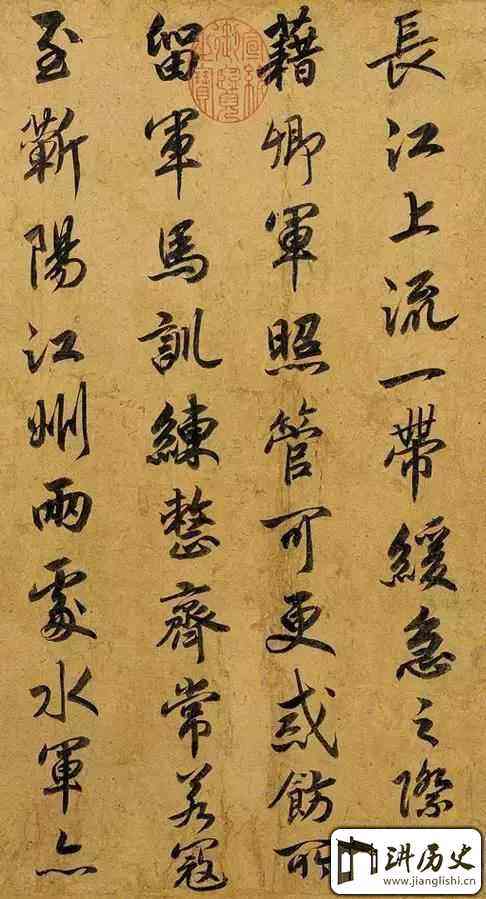 長江上流一帶緩急之際
藉卿軍照管可更戒飭所
留軍馬訓練整齊常若寇
至蘄陽江州兩處水軍亦
宣統御覽之寶
讲历史
www.jianglishi.cn